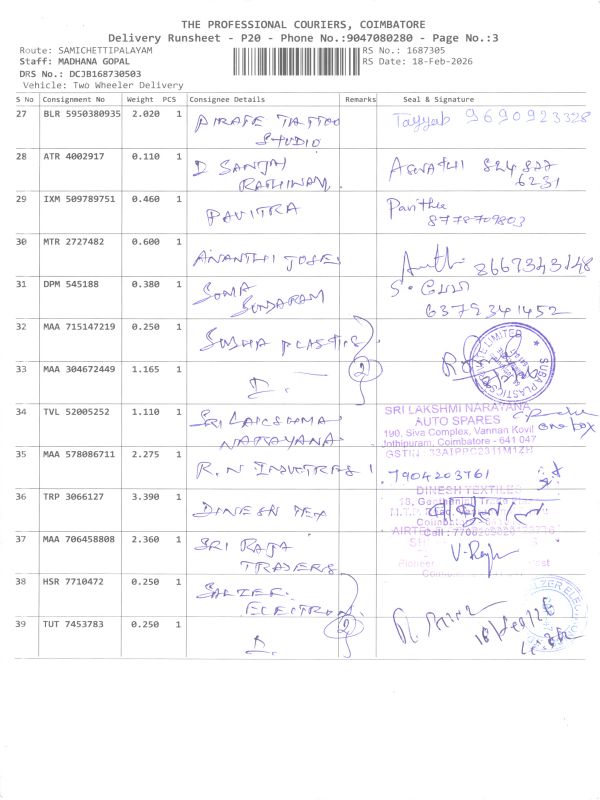 THE PROFESSIONAL COURIERS, COIMBATORE
Delivery Runsheet - P20 - Phone No.:9047080280 - Page No.:3
Route: SAMICHETTIPALAYAM
RS No.: 1687305
Staff: MADHANA GOPAL
RS Date: 18-Feb-2026
DRS No.: DCJB168730503
Vehicle: Two Wheeler Delivery
S No Consignment No Weight PCS Consignee Details Remarks Seal & Signature
27 BLR 5950380935 2.020 1 PIRATE TATTOO Tayyab 9690923328
STUDIO
28 ATR 4002917 0.110 1 D SANJAI ASWATHI 824 827
RATHINAM. 6231
29 IXM 509789751 0.460 1 PAVITRA Pavithra
8778709803
30 MTR 2727482 0.600 1 ANANTHI JOSE 8667343148
31 DPM 545188 0.380 1 SOMA
SUNDARAM 6379341452
32 MAA 715147219 0.250 1 SUSHA PLASTICS
SUBA PLASTICS PRIVATE LIMITED
33 MAA 304672449 1.165 1 D. 2
34 TVL 52005252 1.110 1 SRI LAKSHMA
NARAYANA
SRI LAKSHMI NARAYANA
AUTO SPARES
190, Siva Complex, Vannan Kovil one box
Jothipuram, Coimbatore - 641 047
GSTIN : 33AIPPC2311M1ZH
35 MAA 578086711 2.275 1 R.N INDUSTRIES 7904203761
36 TRP 3066127 3.390 1 DINESH TEX
DINESH TEXTILES
37 MAA 706458808 2.360 1 SRI RAJA
TRADERS V. Raja
38 HSR 7710472 0.250 1 SALZER
ELECTRON
39 TUT 7453783 0.250 1 D. 2